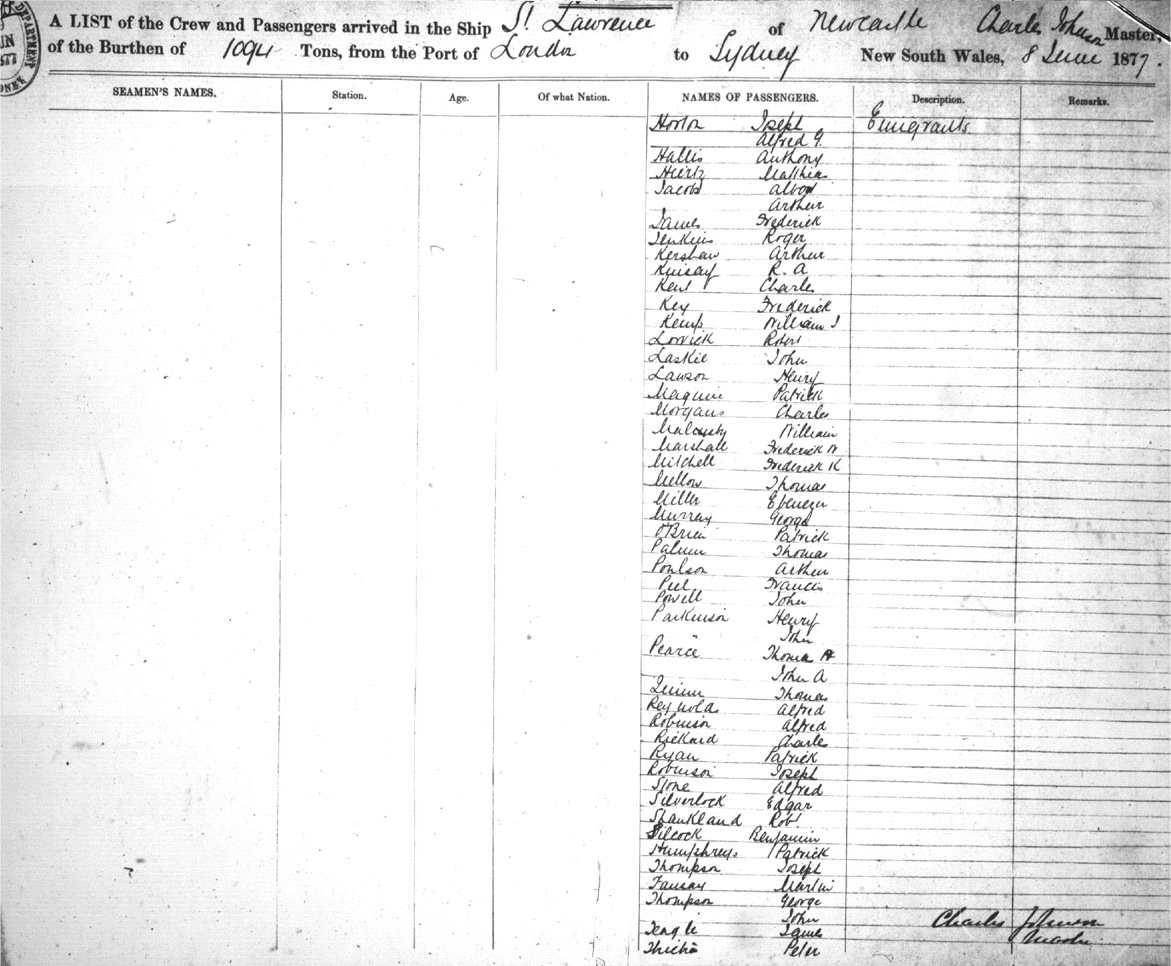 A LIST of the Crew and Passengers arrived in the Ship St. Lawrence of Newcastle Charles Johnson Master,
of the Burthen of 1094 Tons, from the Port of London to Sydney New South Wales, 8 June 1877.
SEAMEN'S NAMES. Station. Age. Of what Nation. NAMES OF PASSENGERS. Description. Remarks.
Horton Joseph Emigrants
Alfred G.
Hallis Anthony
Hertz Matthias
Jacobs
Arthur
James Frederick
Jenkins Roger
Kershaw Arthur
R. A
Kent Charles
Key Frederick
Kemp William J
Robert
Laskie John
Lawson Henry
Maguire Patrick
Morgans Charles
William
Marshall Frederick W
Mitchell Frederick K
Mellow Thomas
Miller Ebenezer
Murray George
O'Brien Patrick
Thomas
Poulson Arthur
Peel Francis
Powell John
Parkinson Henry
John
Pearce Thomas H
John A
Quinn Thomas
Reynolds Alfred
Robinson Alfred
Rickard Charles
Ryan Patrick
Robinson Joseph
Stone Alfred
Silverlock Edgar
Shankland Robt
Silcock Benjamin
Humphreys Patrick
Thompson Joseph
Martin
Thompson George
John Charles Johnson
James Master
Peter